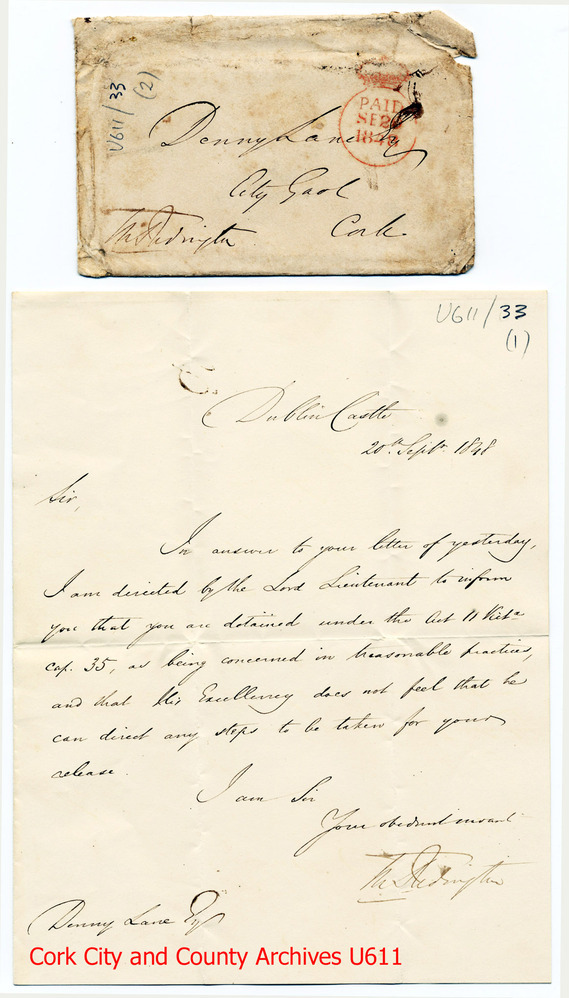 U611/33
(2)
PAID
SE 20
1848
Denny Lane Esq
City Gaol
Cork
Th. Redington
U611/33
(1)
C.
Dublin Castle
20th Septr. 1848
Sir,
In answer to your letter of yesterday,
I am directed by the Lord Lieutenant to inform
you that you are detained under the Act 11 Victa
cap. 35, as being concerned in treasonable practices,
and that His Excellency does not feel that he
can direct any steps to be taken for your
release.
I am Sir
Your obedient servant
Th. Redington
Denny Lane Esq
Cork City and County Archives U611